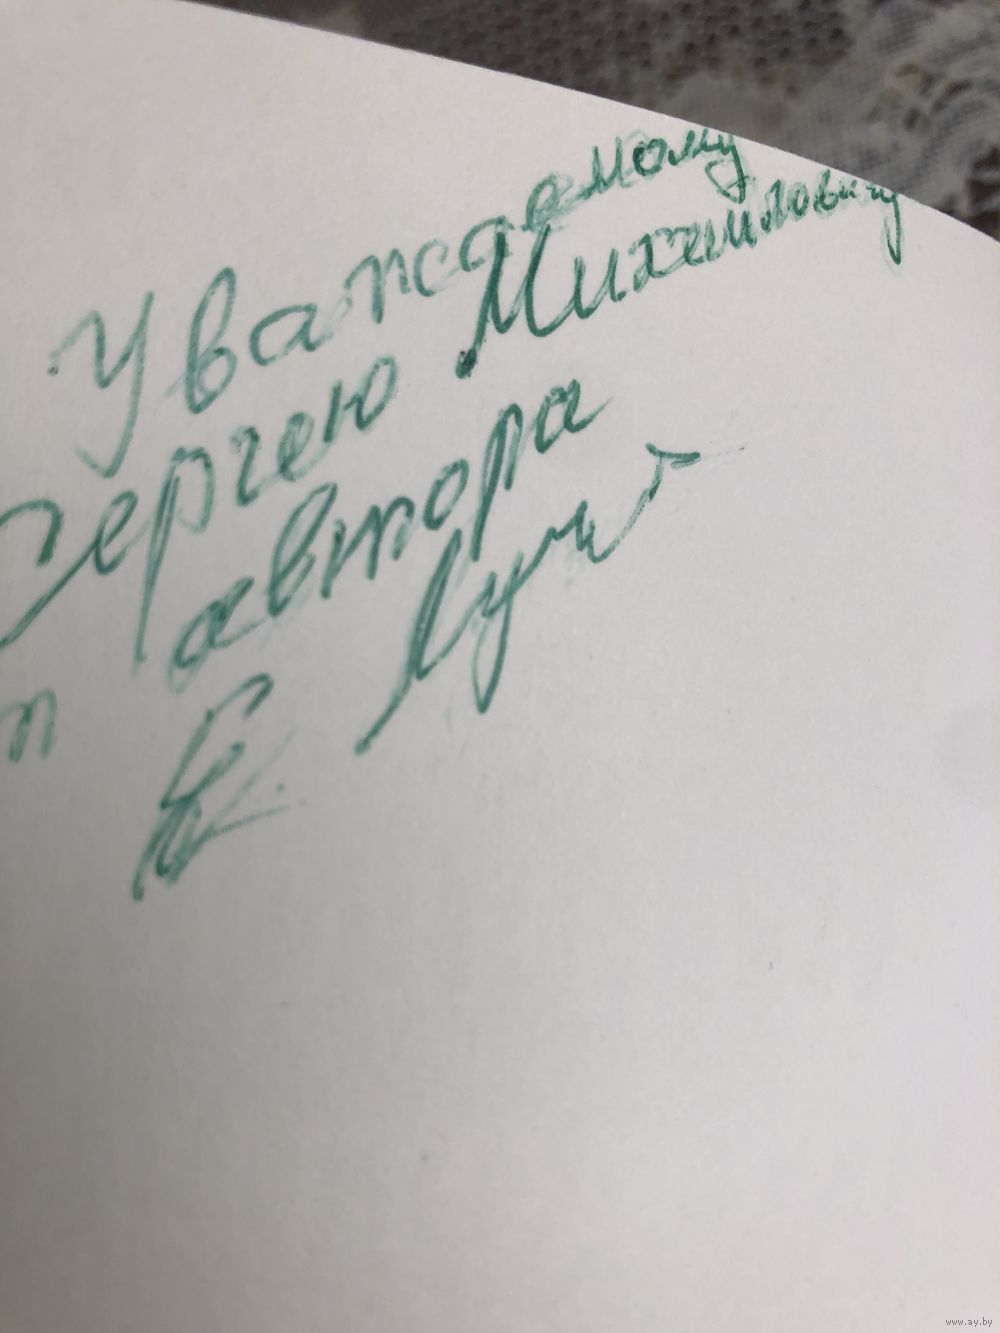 Уважаемому
Сергею Михайловичу
от автора
www.ay.by